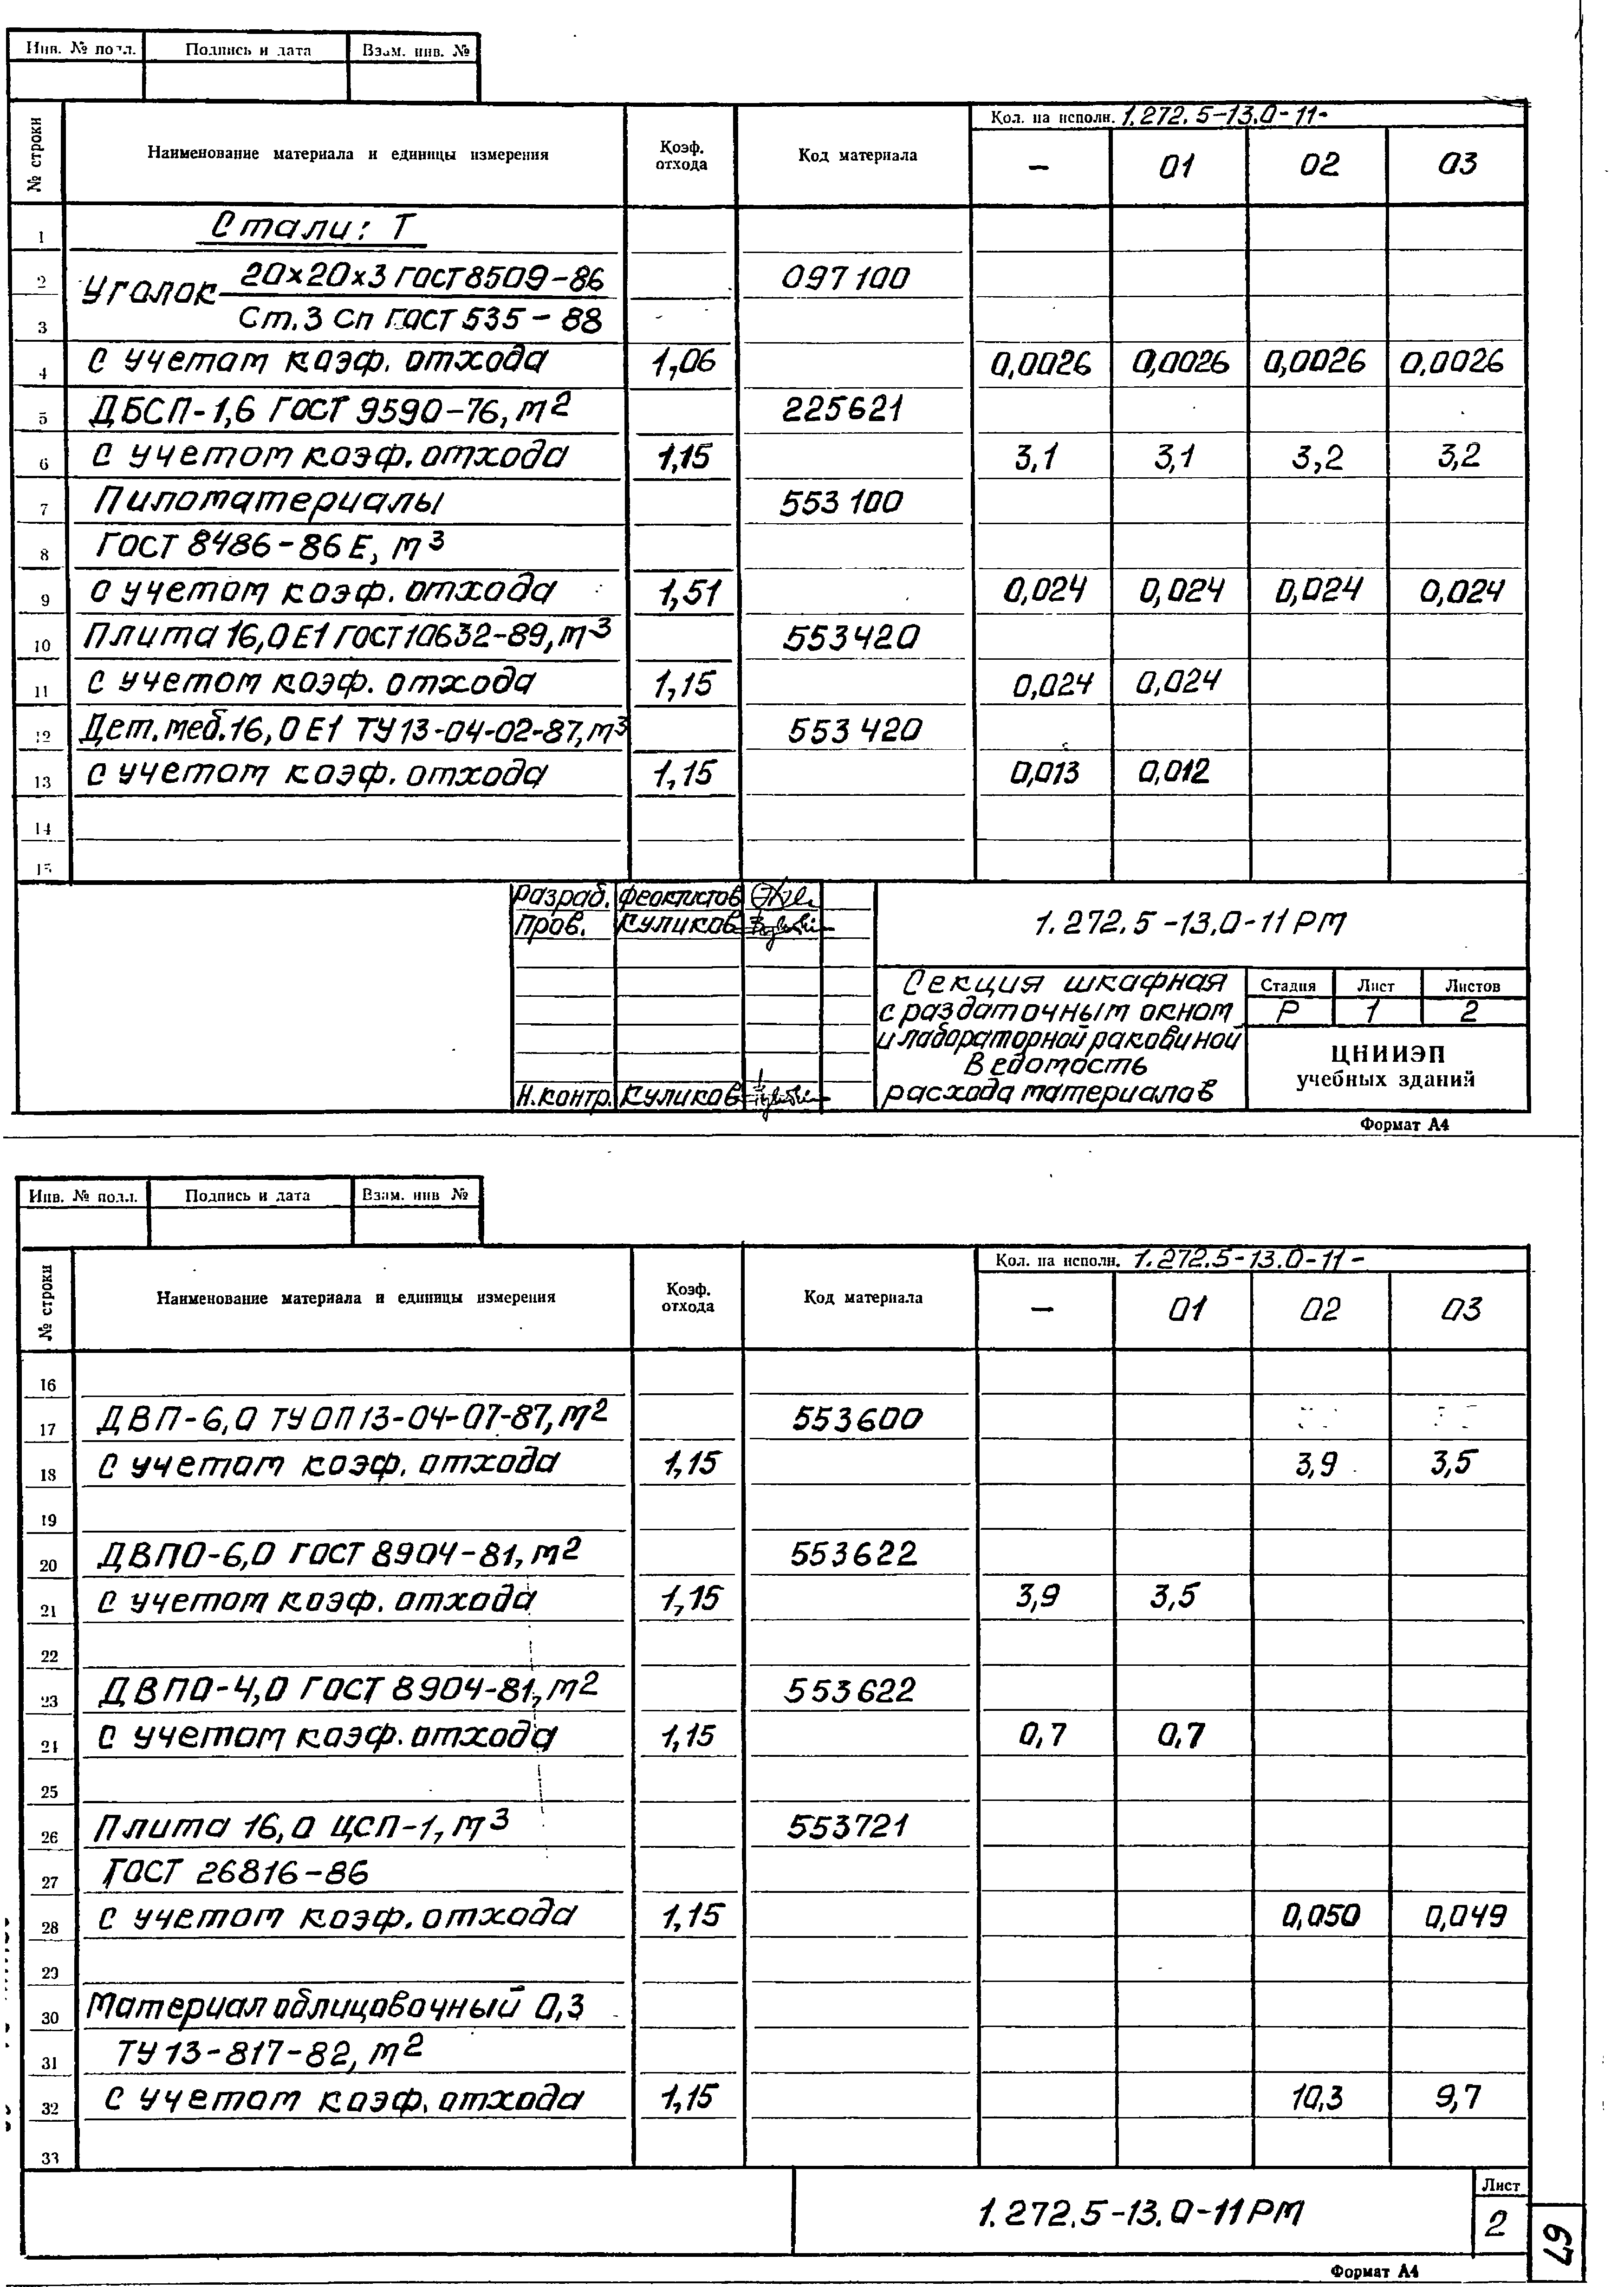 Инв. № подл. Подпись и дата Взам. инв. №
№ строки Наименование материала и единицы измерения Коэф. отхода Код материала Кол. на исполн. 1.272.5-13.0-11-
– 01 02 03
1 Стали: Т
2 Уголок 20х20х3 ГОСТ 8509-86 097100
3 Ст.3 сп ГОСТ 535-88
4 С учетом коэф. отхода 1,06 0,0026 0,0026 0,0026 0,0026
5 ДБСП-1,6 ГОСТ 9590-76, м2 225621
6 С учетом коэф. отхода 1,15 3,1 3,1 3,2 3,2
7 Пиломатериалы 553100
8 ГОСТ 8486-86Е, м3
9 С учетом коэф. отхода 1,51 0,024 0,024 0,024 0,024
10 Плита 16,0 Е1 ГОСТ 10632-89, м3 553420
11 С учетом коэф. отхода 1,15 0,024 0,024
12 Дет. меб. 16,0 Е1 ТУ 13-04-02-87, м3 553420
13 С учетом коэф. отхода 1,15 0,013 0,012
14
15
Разраб. Феоктистов
Пров. Куликов
Н.контр. Куликов
1.272.5-13.0-11РМ
Секция шкафная
с раздаточным окном
и лабораторной раковиной
Ведомость
расхода материалов
Стадия Лист Листов
Р 1 2
ЦНИИЭП
учебных зданий
Формат А4
Инв. № подл. Подпись и дата Взам. инв № 
№ строки Наименование материала и единицы измерения Коэф. отхода Код материала Кол. на исполн. 1.272.5-13.0-11-
– 01 02 03
16
17 ДВП-6,0 ТУ ОП 13-04-07-87, м2 553600
18 С учетом коэф. отхода 1,15 3,9 3,5
19
20 ДВПО-6,0 ГОСТ 8904-81, м2 553622
21 С учетом коэф. отхода 1,15 3,9 3,5
22
23 ДВПО-4,0 ГОСТ 8904-81, м2 553622
24 С учетом коэф. отхода 1,15 0,7 0,7
25
26 Плита 16,0 ЦСП-1, м3 553721
27 ГОСТ 26816-86
28 С учетом коэф. отхода 1,15 0,050 0,049
29
30 Материал облицовочный 0,3
31 ТУ 13-817-82, м2
32 С учетом коэф. отхода 1,15 10,3 9,7
33
1.272.5-13.0-11РМ
Лист
2
67
Формат А4